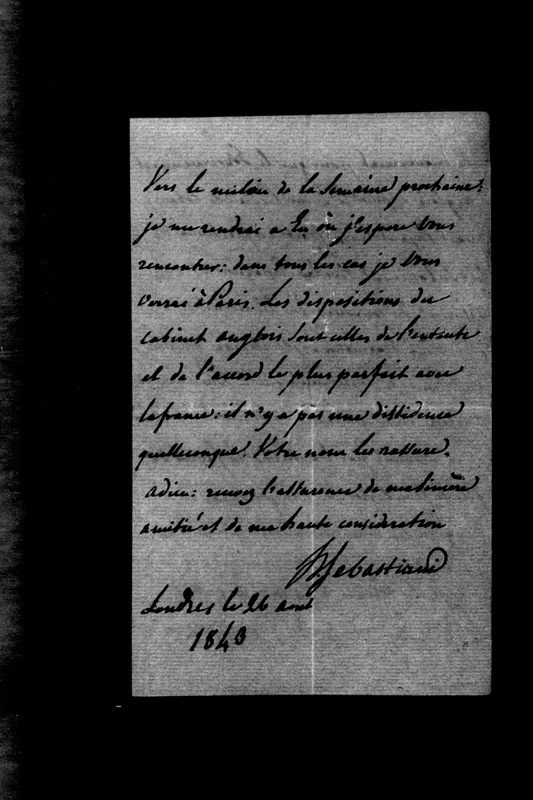 Vers le milieu de la Semaine prochaine,
je me rendrai a Eu où j'espere vous
rencontrer: dans tous les cas je vous
verrai à Paris. Les dispositions du
cabinet anglois sont celles de l'entente
et de l'accord le plus parfait avec
la france: il n'y a pas une dissidence
quelleconque. Votre nom les rassure.
adieu: recevez l'assurance de ma sincère
amitié et de ma haute consideration
Sebastiani
Londres le 26 aout
1843